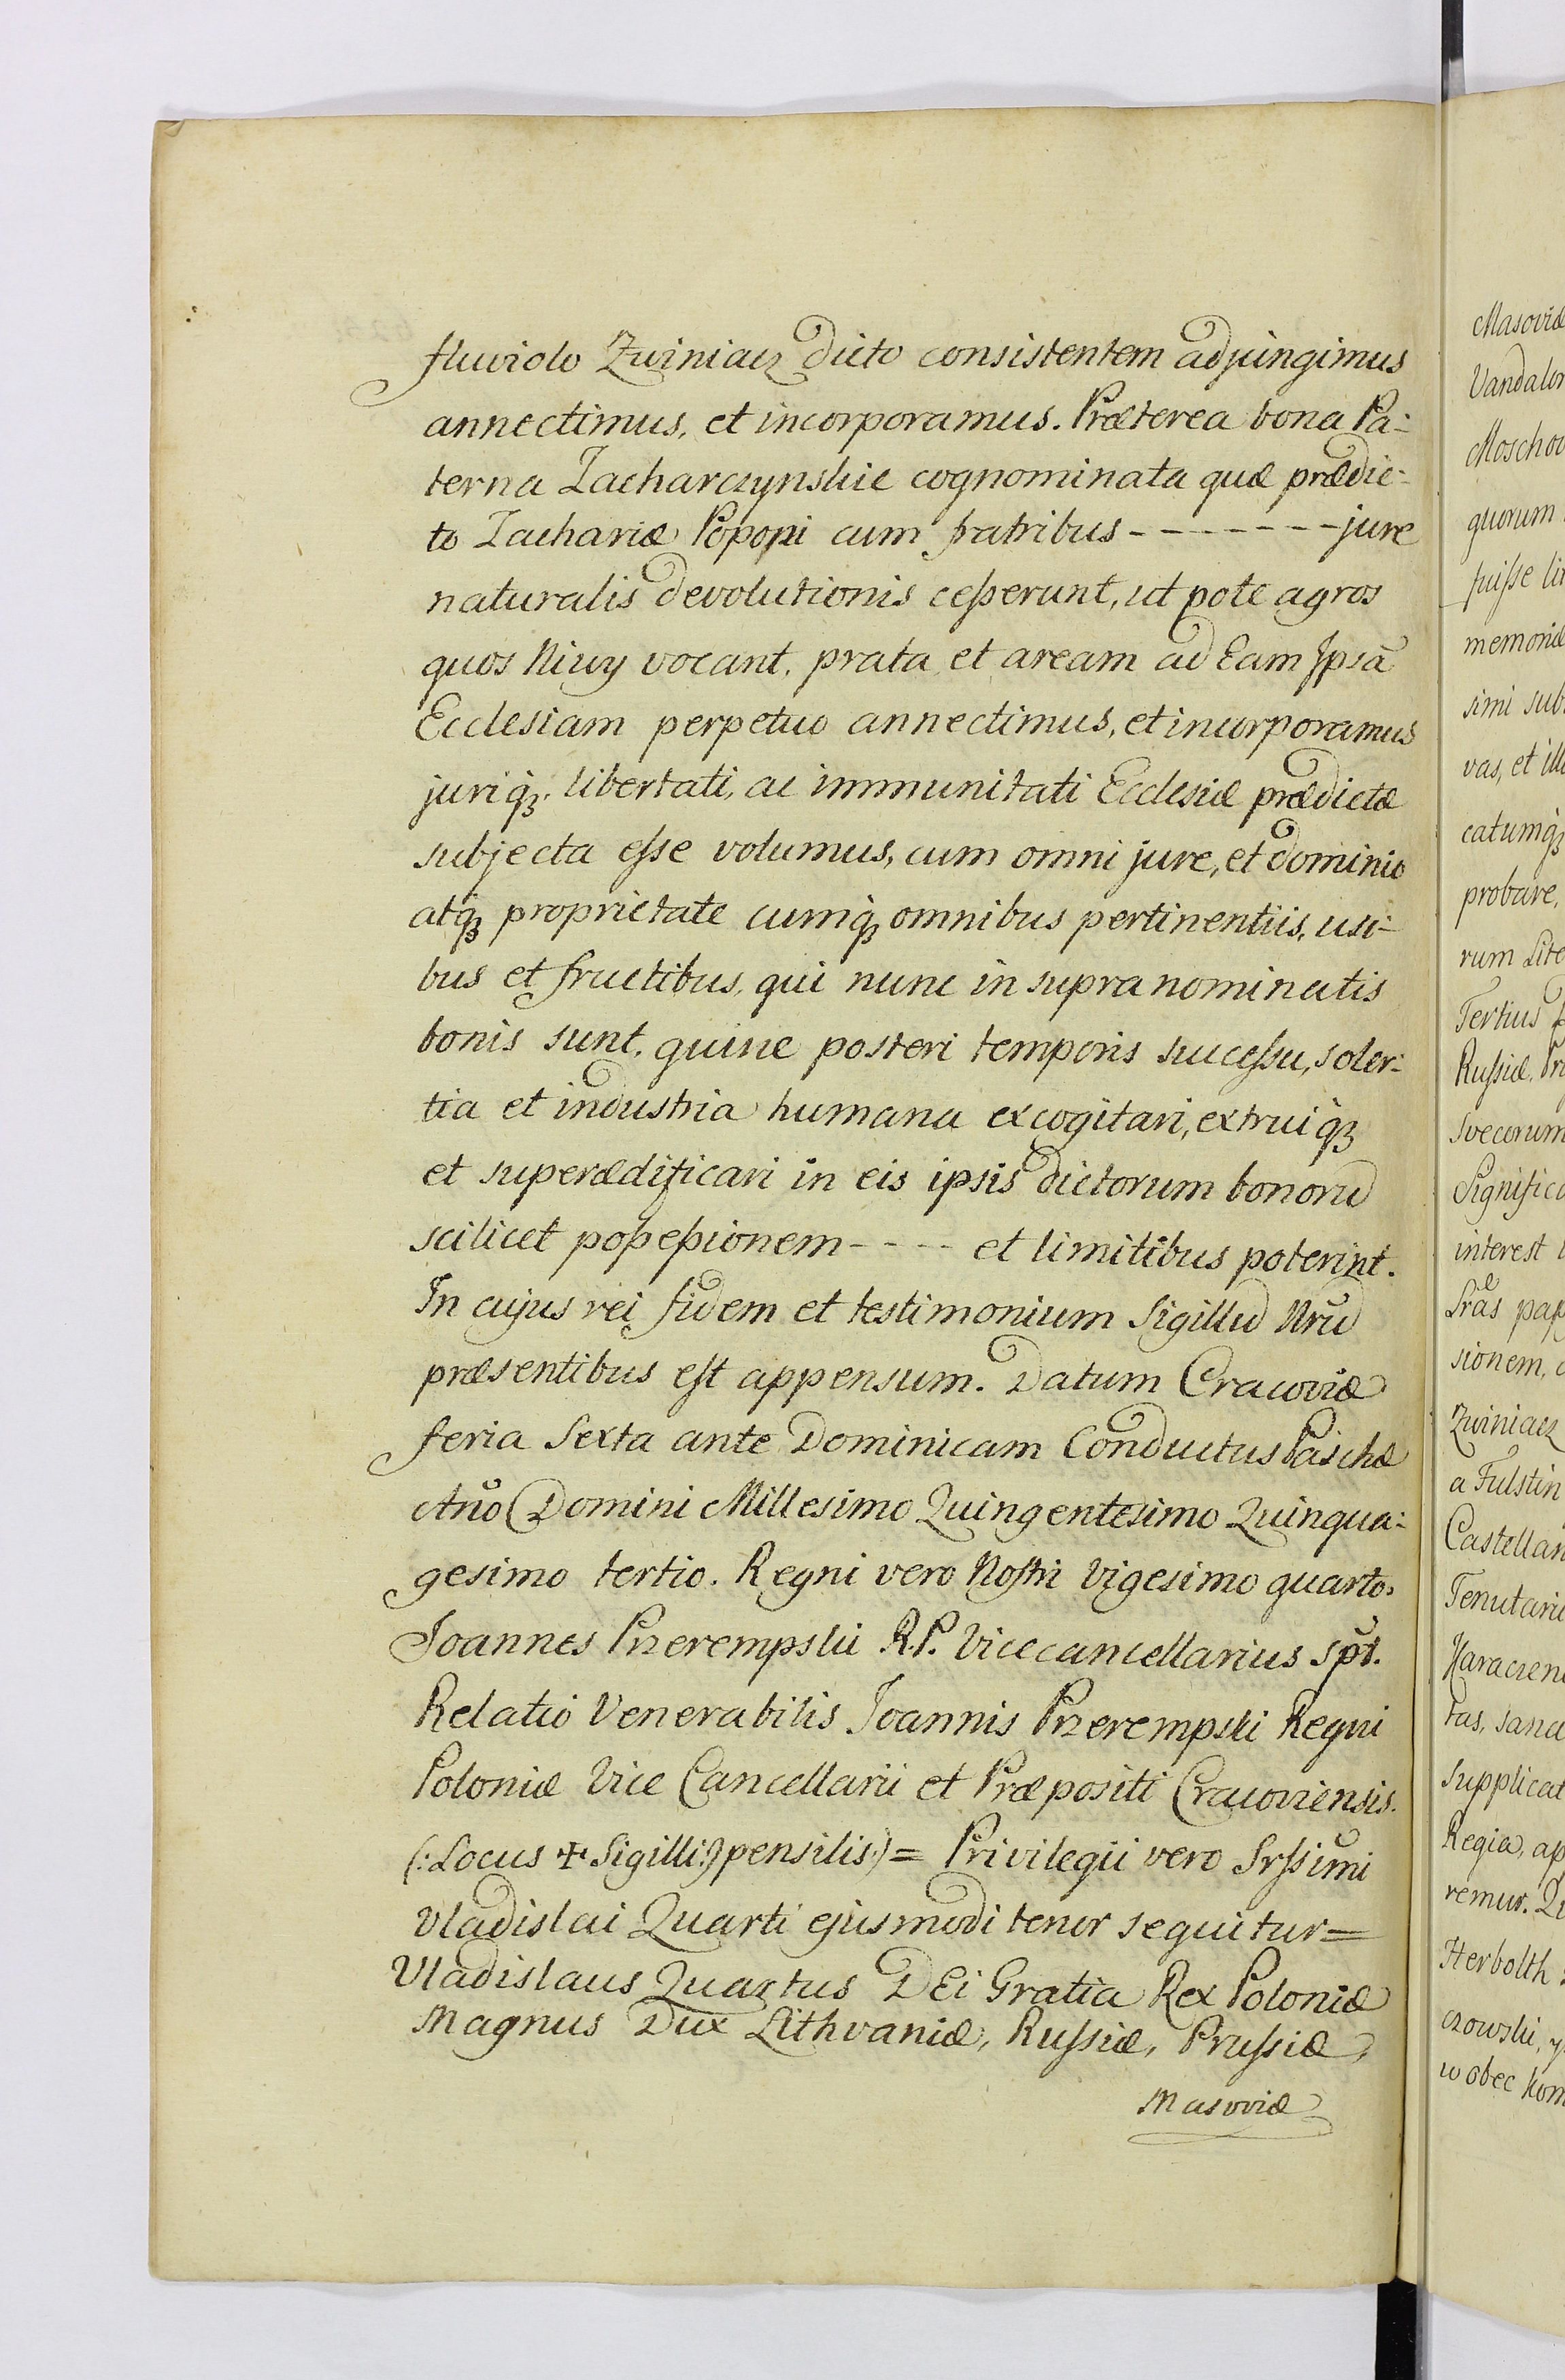 fluviolo Zwiniacz dicto consistentem adjungimus
annectimus, et incorporamus. Præterea bona Pa-
terna Zacharczynskie cognominata quæ prædic-
to Zachariæ Poponi cum fratribus - - - - - - - jure
naturalis devolutionis cesserunt, ut pote agros
quos Niwy vocant, prata et aream ad Eam Ipsã
Ecclesiam perpetuo annectimus, et incorporamus
juriq́ȝ. libertati, ac immunitati Ecclesiæ prædictæ
subjecta esse volumus, cum omni jure, et dominio
atq́ȝ proprietate cumq́ȝ omnibus pertinentiis, usi-
bus et fructibus, qui nunc in supra nominatis
bonis sunt, quive posteri temporis successu, soler-
tia et industria humana excogitari, extruiq́ȝ
et superædificari in eis ipsis dictorum bonorũ
scilicet possessionem - - - - et limitibus poterint.
In cujus rei fidem et testimonium Sigillũ Nrũ
præsentibus est appensum. Datum Cracoviæ
feria Sexta ante Dominicam Conductus Paschæ
Año Domini Millesimo Quingentesimo Quinqua-
gesimo tertio. Regni vero Nostri Vigesimo quarto.
Joannes Przerempski R.P. Vicecancellarius spt.
Relatio Venerabilis Joannis Przerempski Regni
Poloniæ Vice Cancellarii et Præpositi Cracoviensis.
(: Locus ✠ Sigilli :) pensilis :) = Privilegii vero Srssimi
Vladislai Quarti ejusmodi tenor sequitur =
Vladislaus Quartus DEi Gratia Rex Poloniæ
Magnus Dux Lithvaniæ, Russiæ, Prussiæ,
Masoviæ
Masoviæ
Vandalor
Moschov
quorum
fuisse lit
memoriæ
simi sub
vas, et ill
catumq́ȝ
probare,
rum Lite
Tertius
Russiæ, Pr
Svecorum
Significa
interest
Srãs pap
sionem,
Zwiniacz
a Fulstin
Castellan
Tenutari
Karaczen
tas, sanc
supplicat
Regia, ap
remur. Qu
Herbolth
czowski, y
wobec kom